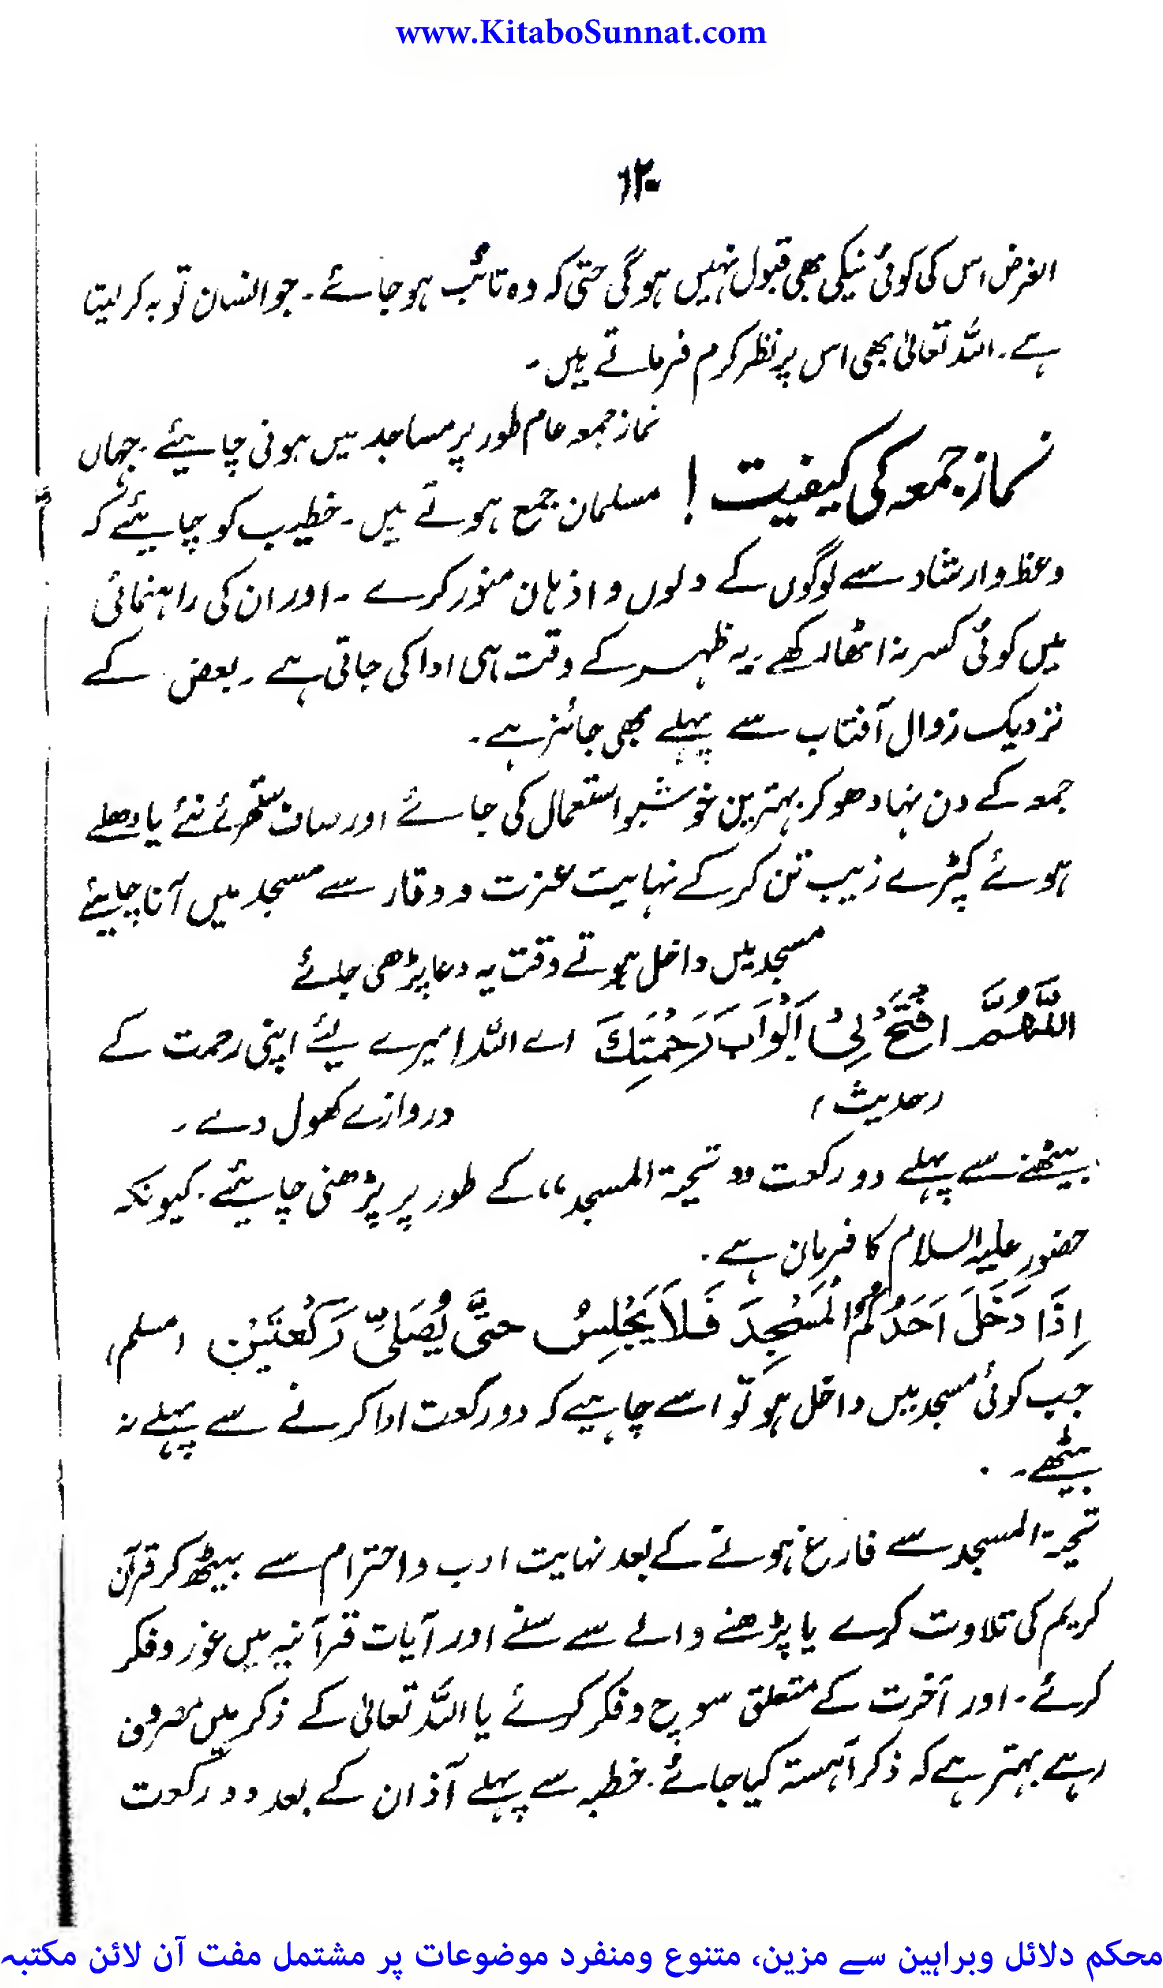 www.KitaboSunnat.com
۱۲۰
الغرض اس کی کوئی نیکی بھی قبول نہیں ہوگی حتیٰ کہ وہ تائب ہو جائے۔ جو انسان توبہ کر لیتا
ہے۔ اللہ تعالیٰ بھی اس پر نظر کرم فرماتے ہیں۔
نماز جمعہ کی کیفیت!
نماز جمعہ عام طور پر مساجد میں ہونی چاہیئے۔ جہاں
مسلمان جمع ہوتے ہیں۔ خطیب کو چاہیئے کہ
وعظ و ارشاد سے لوگوں کے دلوں و اذہان منور کرے ۔ اور ان کی راہنمائی
میں کوئی کسر نہ اٹھا رکھے۔ یہ ظہر کے وقت ہی ادا کی جاتی ہے ۔ بعض کے
نزدیک زوال آفتاب سے پہلے بھی جائز ہے۔
جمعہ کے دن نہا دھو کر بہترین خوشبو استعمال کی جائے اور صاف ستھرے نئے یا دھلے
ہوئے کپڑے زیب تن کر کے نہایت عزت و وقار سے مسجد میں آنا چاہیئے
مسجد میں داخل ہوتے وقت یہ دعا پڑھی جائے
اَللّٰهُمَّ افْتَحْ لِیْ اَبْوَابَ رَحْمَتِكَ اے اللہ! میرے لیئے اپنی رحمت کے
(حدیث) دروازے کھول دے ۔
بیٹھنے سے پہلے دو رکعت ”تحیۃ المسجد“ کے طور پر پڑھنی چاہیئے۔ کیونکہ
حضور علیہ السلام کا فرمان ہے۔
اِذَا دَخَلَ اَحَدُكُمُ الْمَسْجِدَ فَلَا يَجْلِسُ حتَّى يُصَلِّىَ رَكْعَتَيْنِ (مسلم)
جب کوئی مسجد میں داخل ہو تو اسے چاہیے کہ دو رکعت ادا کرنے سے پہلے نہ
بیٹھے۔
تحیۃ المسجد سے فارغ ہونے کے بعد نہایت ادب و احترام سے بیٹھ کر قرآن
کریم کی تلاوت کرے یا پڑھنے والے سے سنے اور آیات قرآنیہ میں غور و فکر
کرئے۔ اور آخرت کے متعلق سوچ و فکر کرئے یا اللہ تعالیٰ کے ذکر میں مصروف
رہے بہتر ہے کہ ذکر آہستہ کیا جائے۔ خطبہ سے پہلے آذان کے بعد دو رکعت
محکم دلائل وبراہین سے مزین، متنوع ومنفرد موضوعات پر مشتمل مفت آن لائن مکتبہ